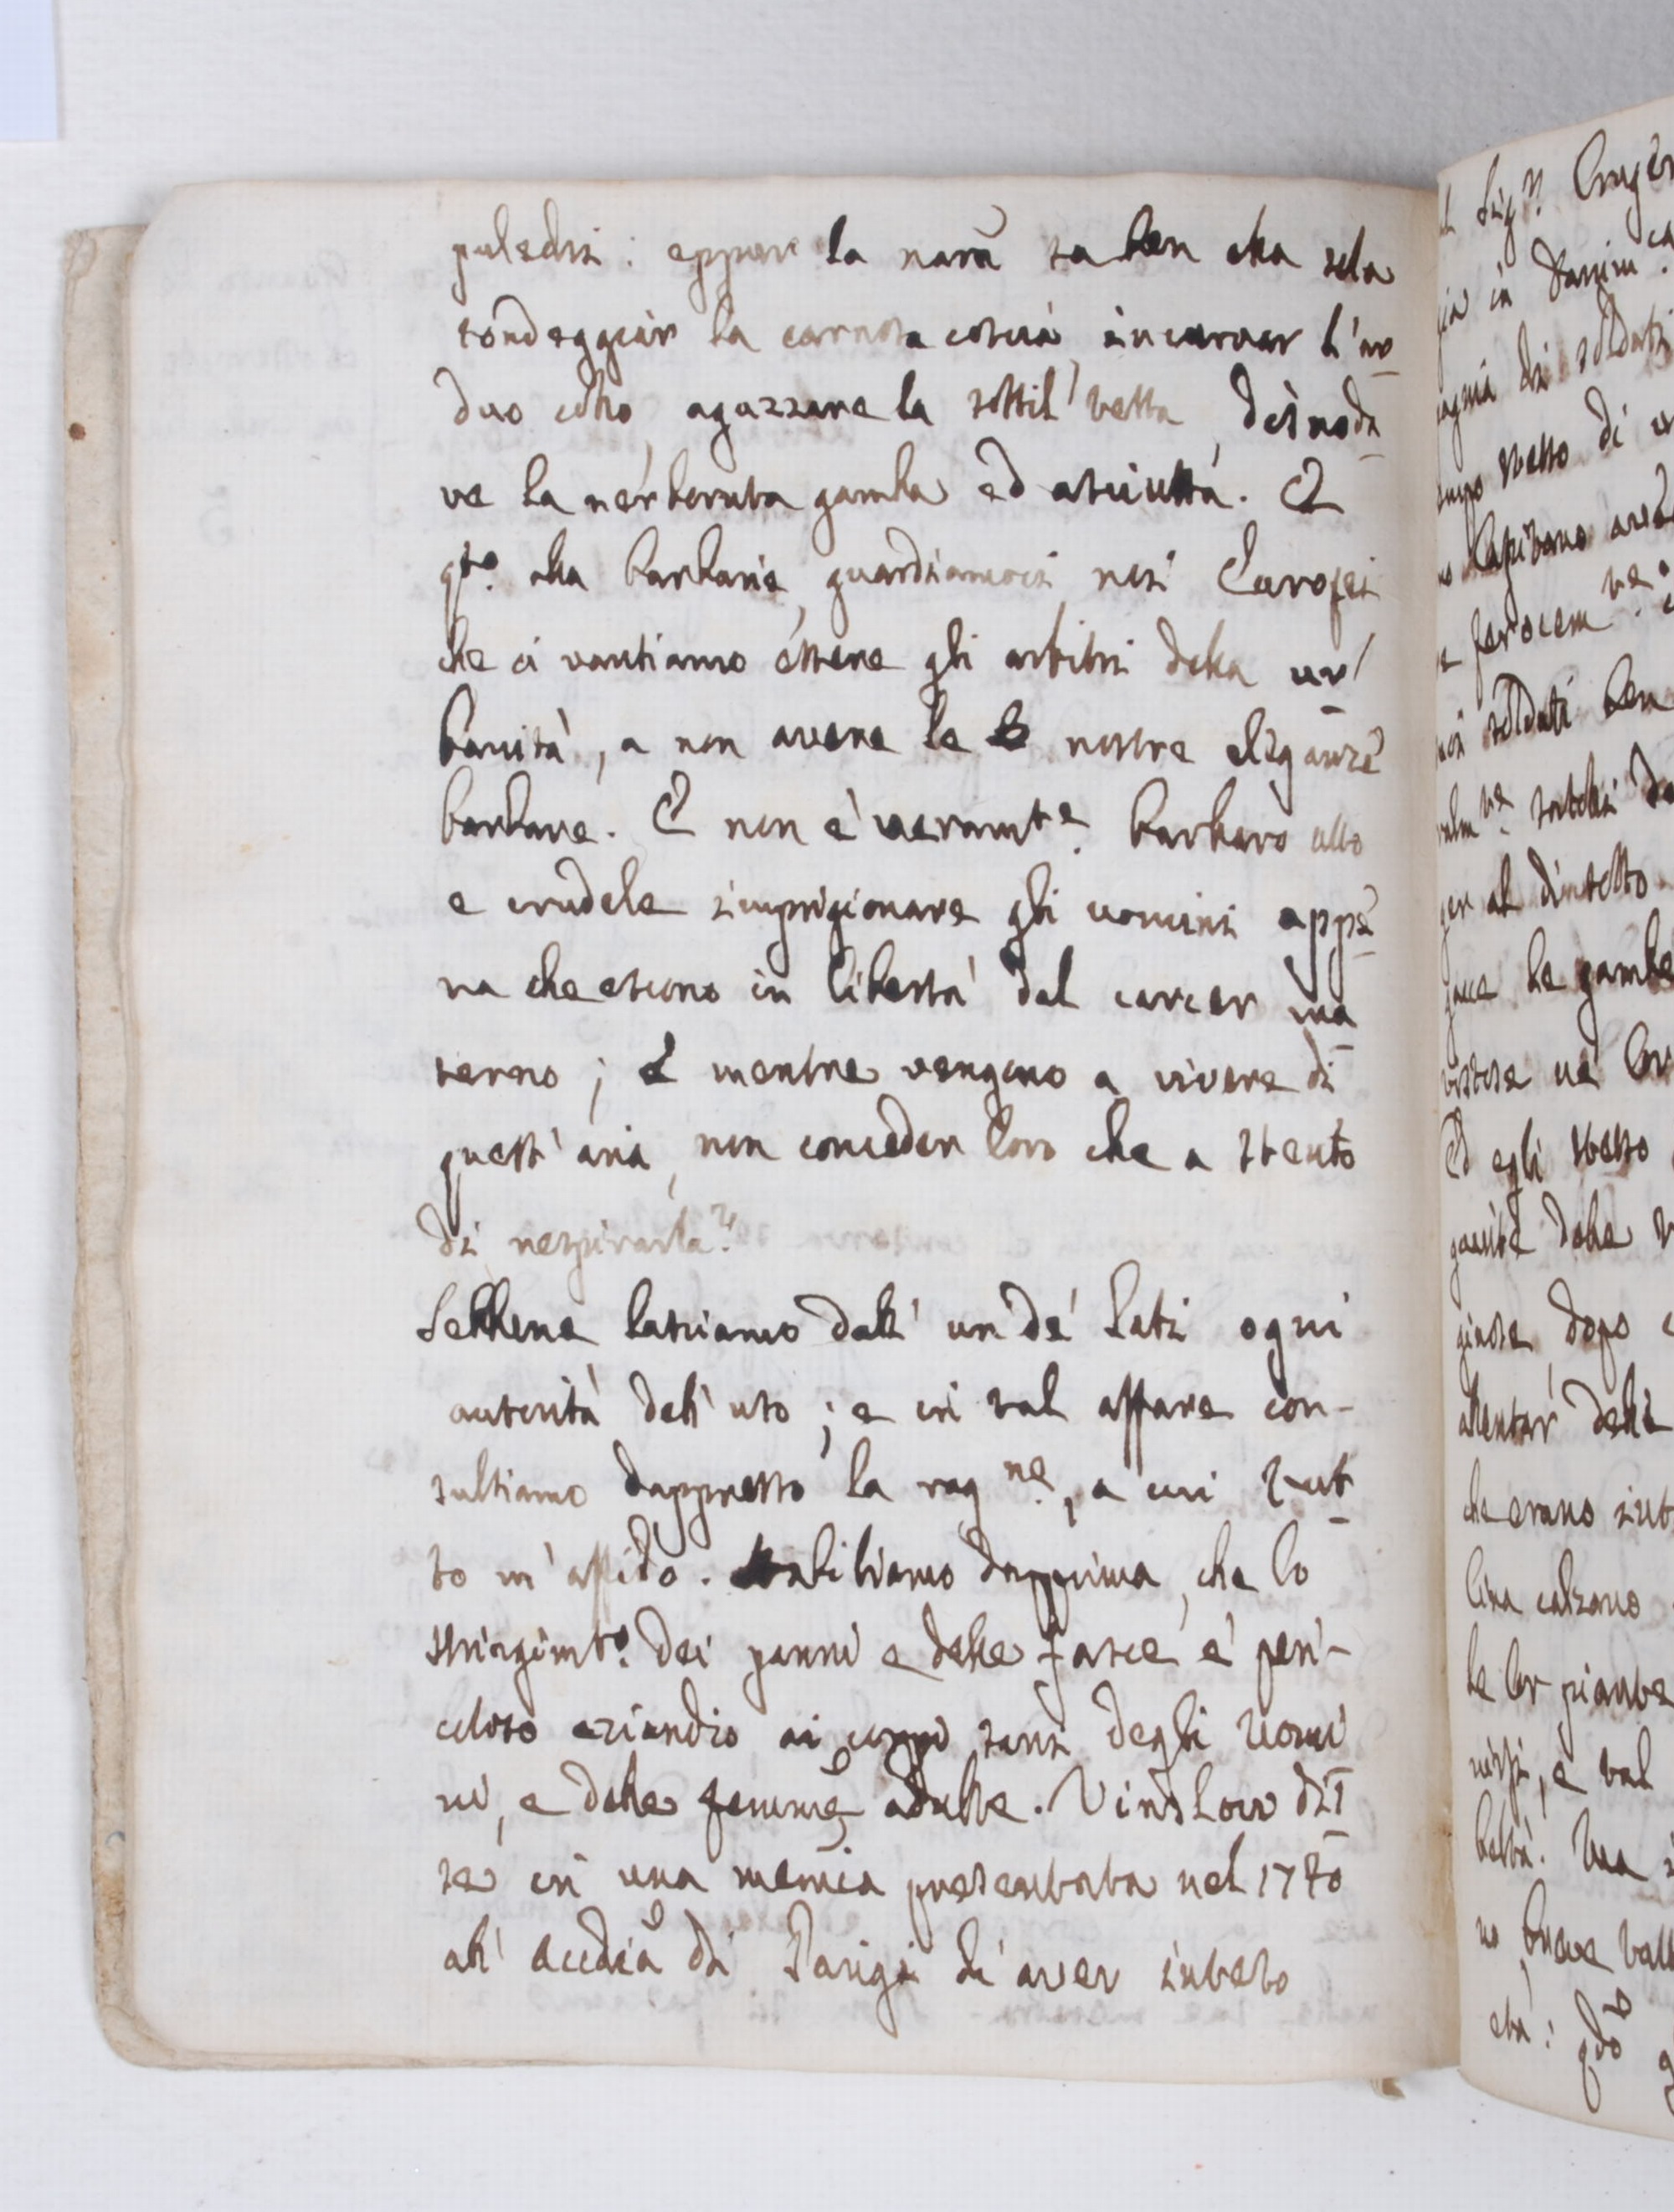 puledri: eppur la narã sa ben ella sola
tondeggiar la carnosa coscia, incurvar l'ar
duo collo, aguzzare la sottil vetta, disnoda
re la nerboruta gamba ed asciutta. E
qto. alla barbarie, guardiamoci noi Europei
che ci vantiamo essere gli arbitri della ur
banità, a non avere le nostre eleganze
barbare. E non è veramte. barbaro atto
e crudele imprigionare gli uomini appe
na che escono in libertà dal carcer ma
terno; e mentre vengono a vivere di
quest'aria, non conceder loro che a stento
di respirarla?
Sebbene lasciamo dall'un de' lati ogni
autorità dell'uso; e in tal affare con-
sultiamo dappresso la ragne., a cui tut
to m'affido. Stabiliamo dapprima, che lo
stringimto. dei panni e delle fasce è peri-
coloso eziandio ai corpi sani degli uomi
ni, e delle femmine adulte. Vinslow dis
se in una memoia presentata nel 1740
all'Accdia di Parigi di aver inteso
l Sigr. Cruger
gia in
pagnia di soldati
stesso di
Capitano
ferocem
soldati ben
per al dintesto
le gambe
Ed egli stesso
delle
dopo
che erano
lina calzano
le lor piante
e tal
beltà. Ma
breve
età: